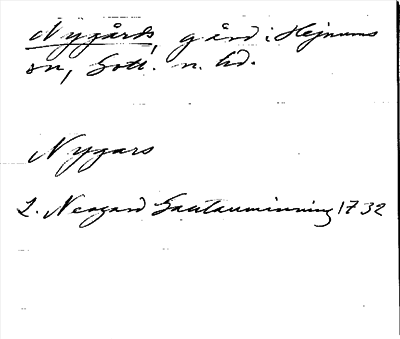 Nygårds, gård i Hejnums
sn, Gotl. n. hd.
Nygars
L. Neogard Gautauminning 1732